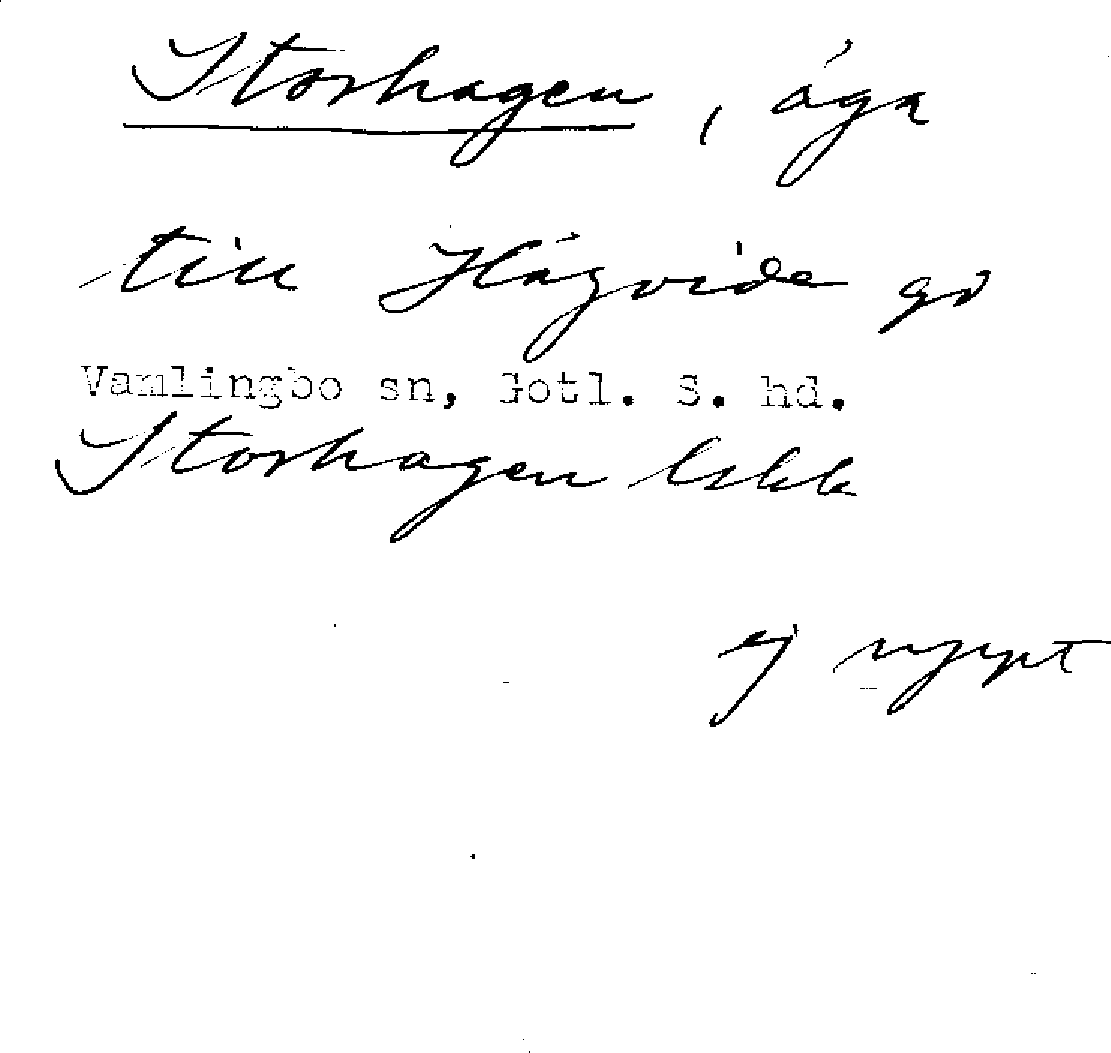 Storhagen, äga
till Hägvide gd
Vamlingbo sn, Gotl. S. hd.
Storhagen
ej uppt